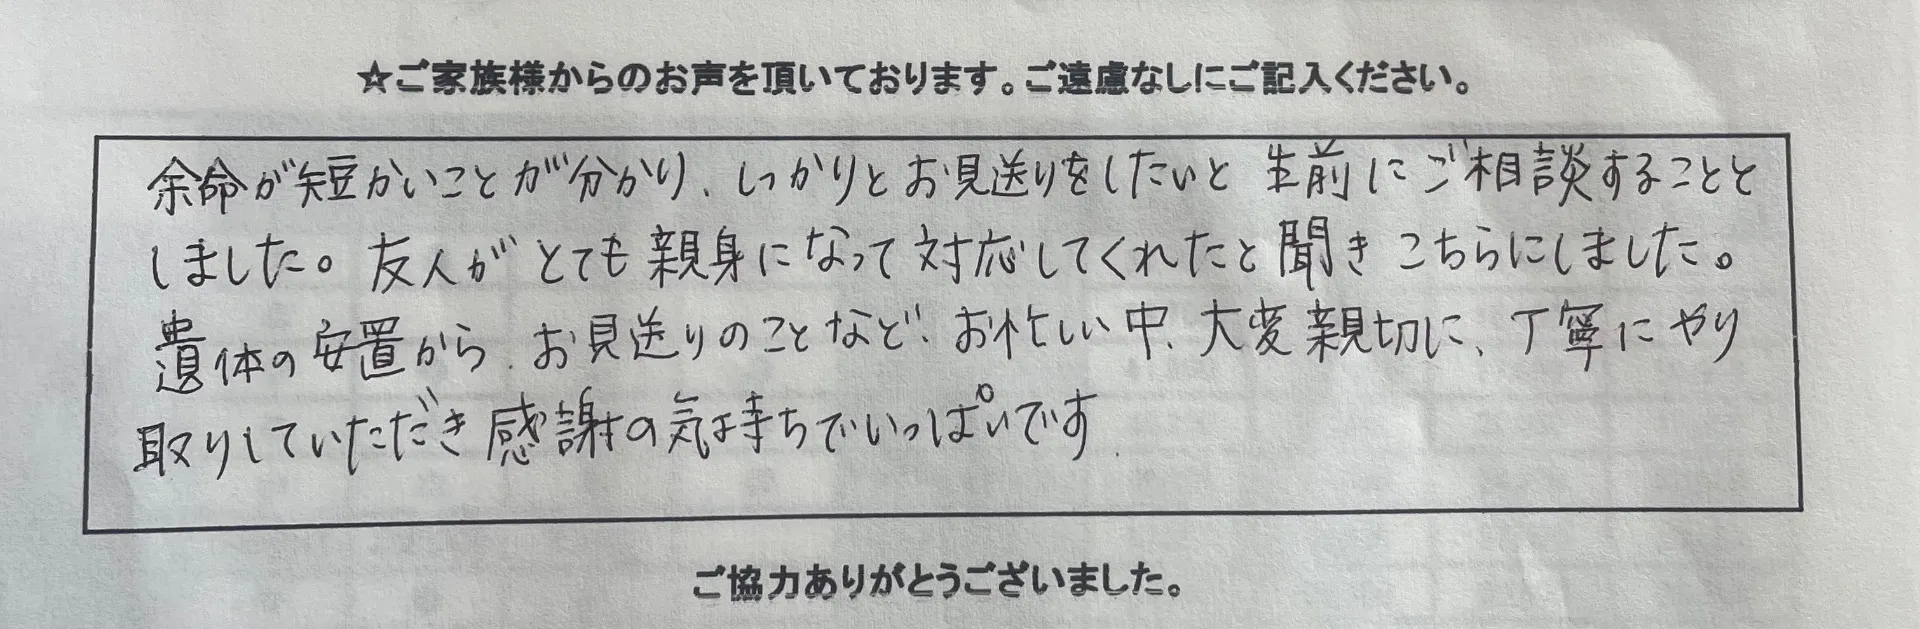 ☆ご家族様からのお声を頂いております。ご遠慮なしにご記入ください。
余命が短かいことが分かり、しっかりとお見送りをしたいと生前にご相談することと
しました。友人がとても親身になって対応してくれたと聞きこちらにしました。
遺体の安置から、お見送りのことなど、お忙しい中、大変親切に、丁寧にやり
取りしていただだき感謝の気持ちでいっぱいです.
ご協力ありがとうございました。